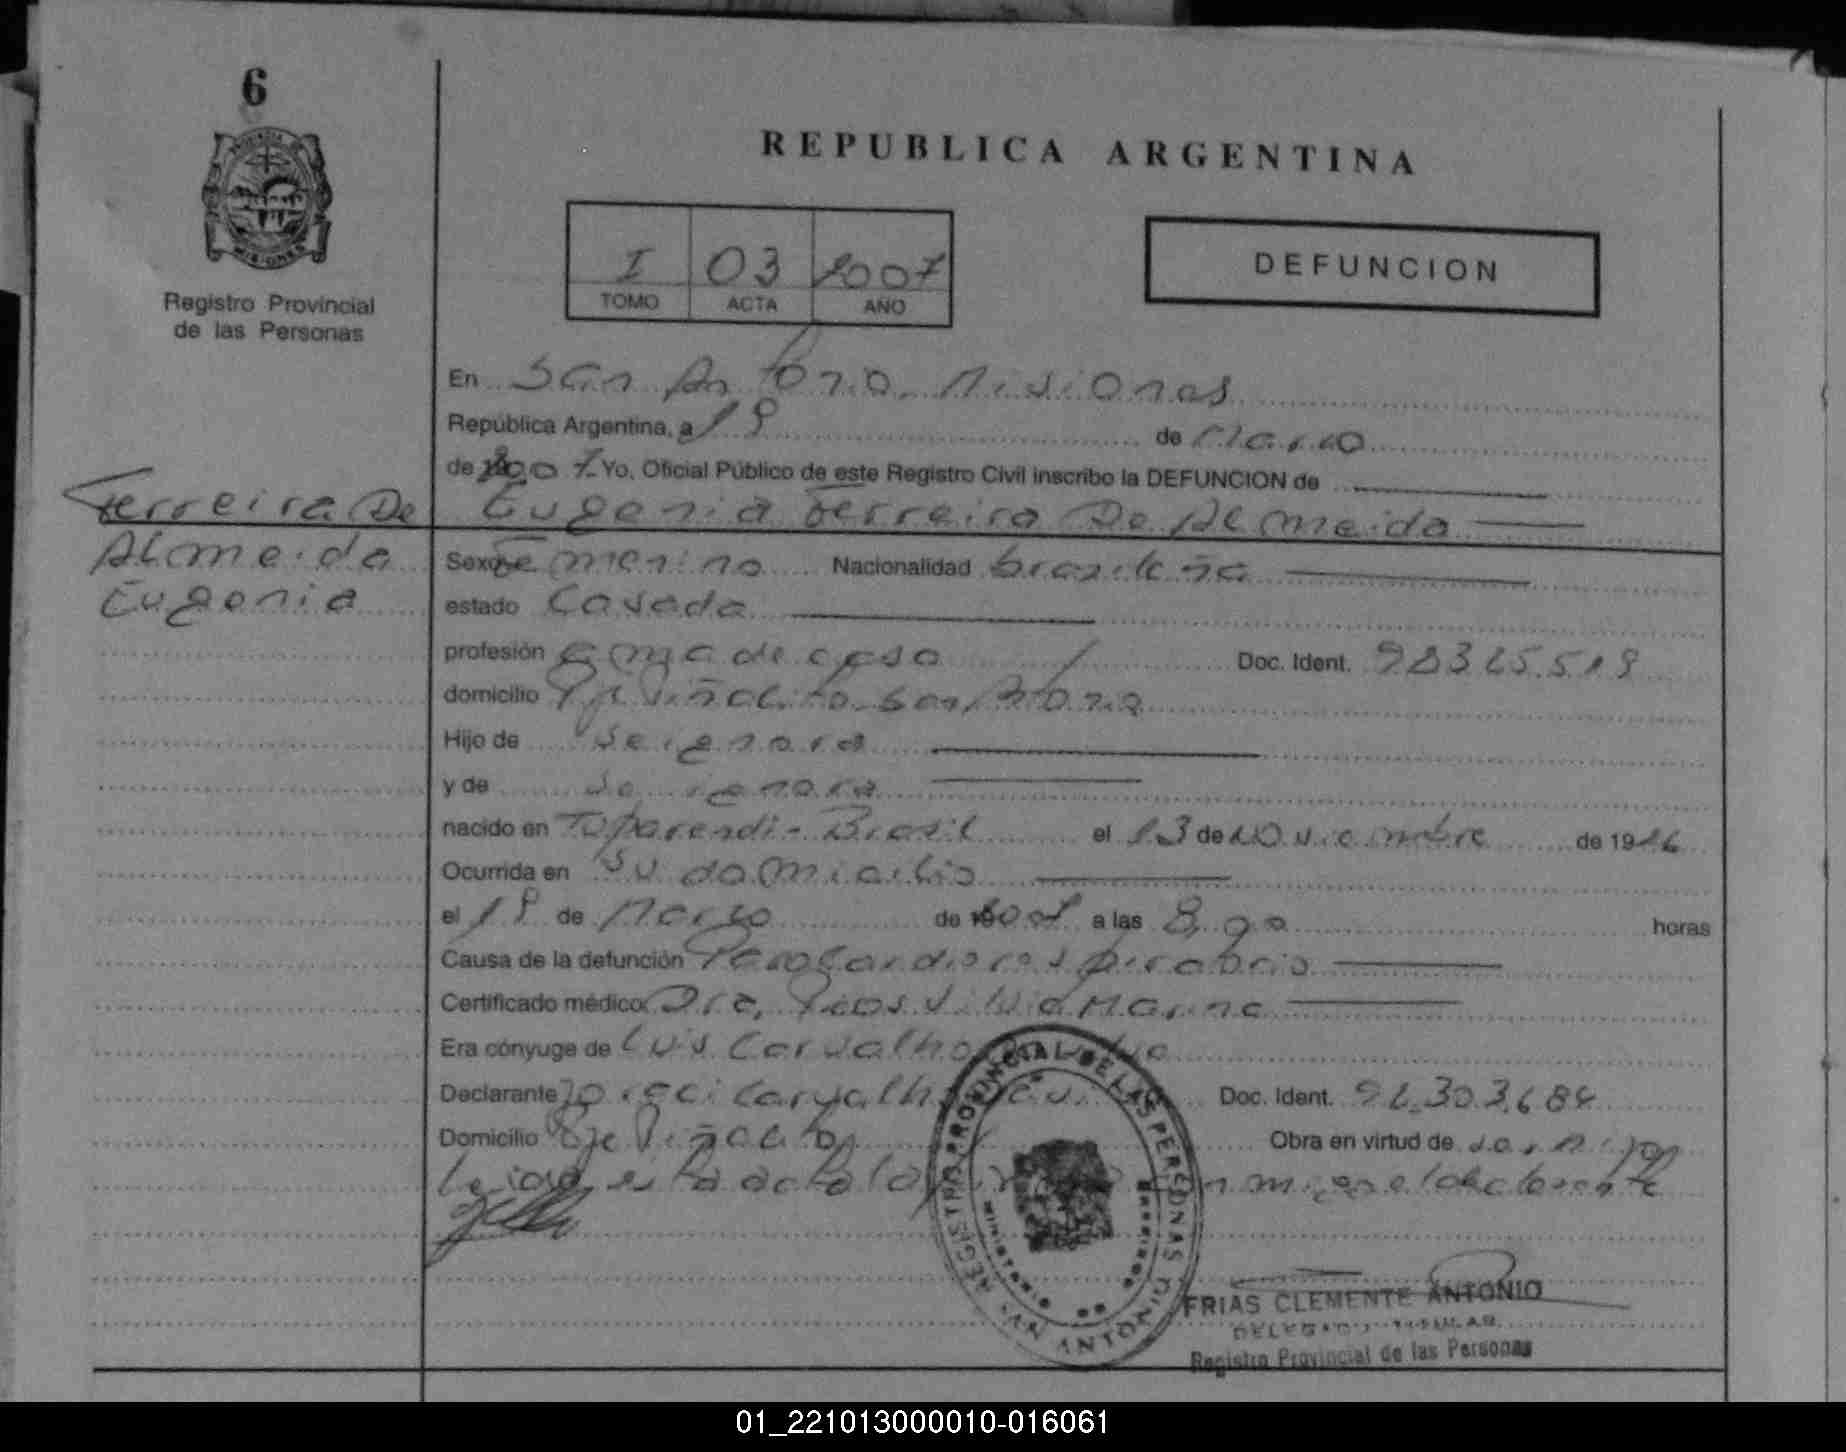 6
REPUBLICA ARGENTINA
I 03 2007
TOMO ACTA AÑO
DEFUNCION
Registro Provincial
de las Personas
En San Antonio Misiones
República Argentina, a 19 de Marzo
de 2007 Yo, Oficial Público de este Registro Civil inscribo la DEFUNCION de
Ferreira De Eugenia Ferreira De Almeida
Almeida
Eugenia
Sexo Femenino Nacionalidad brasileña
estado Casada
profesión ama de casa Doc. Ident.
domicilio Pje Piñalito San Antonio
Hijo de Se ignora
y de Se ignora
nacido en Tuparendi - Brasil el 13 de Noviembre de 19
Ocurrida en Su domicilio
el 19 de Marzo de 2007 a las 8, horas
Causa de la defunción Parocardiorespiratorio
Certificado médico Dra, Marina
Era cónyuge de Luis Carvalho
Declarante Carvalho Doc. Ident. 92.303.684
Domicilio Pje Piñalito Obra en virtud de
Leida esta acta la conmigo el declarante
REGISTRO PROVINCIAL DE LAS PERSONAS
MINISTERIO
SAN ANTONIO
FRIAS CLEMENTE ANTONIO
DELEGADO TITULAR
Registro Provincial de las Personas
01_221013000010-016061